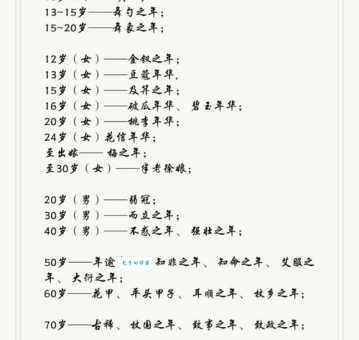 13~15岁——舞勺之年;
15~20岁——舞象之年;
12岁(女)——金钗之年;
13岁(女)——豆蔻年华,
15岁(女)——及笄之年;
16岁(女)——破瓜年华、碧玉年华;
20岁(女)——桃李年华;
24岁(女)花信年华;
至出嫁——梅之年;
至30岁(女)——半老徐娘;
20岁(男)——弱冠;
30岁(男)——而立之年;
40岁(男)——不惑之年、强壮之年;
50岁——年逾 知非之年、知命之年、艾服之
年、大衍之年;
60岁——花甲、平头甲子、耳顺之年、杖乡之年;
70岁——古稀、杖国之年、致事之年、致政之年;